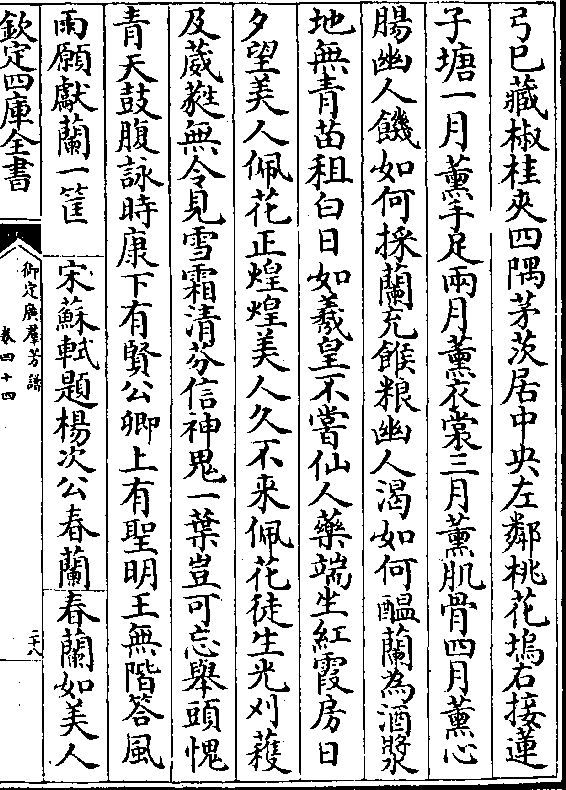 弓巳藏椒桂夾四隅茅茨居中央左鄰桃花塢右接蓮
子塘一月薰手足兩月薰衣裳三月薰肌骨四月薰心
腸幽人饑如何採蘭充餱粮幽人渴如何醖蘭為酒漿
地無青苗租白日如羲皇不嘗仙人藥端坐紅霞房日
夕望美人佩花正煌煌美人久不来佩花徒生光刈蓷
及葳蕤無令見雪霜清芬信神鬼一葉豈可忘舉頭愧
青天鼓腹詠時康下有賢公卿上有聖明王無階答風
雨願獻蘭一筐 宋蘇軾題楊次公春蘭春蘭如美人
欽定四庫全書
御定廣羣芳譜
卷四十四
二十八